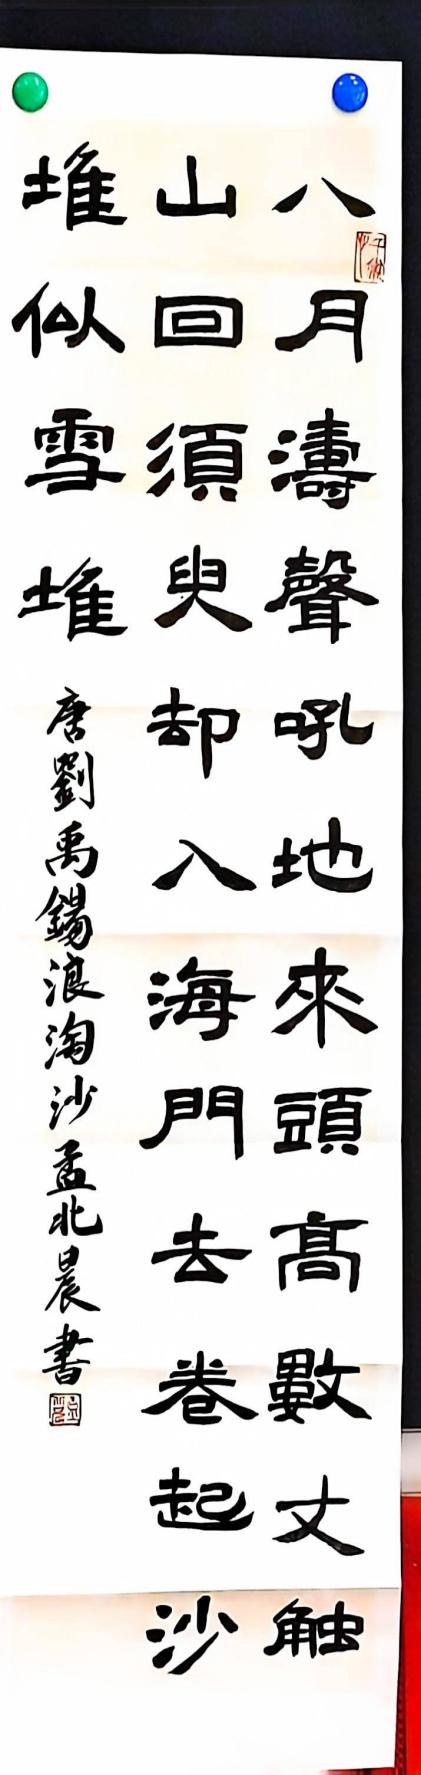 八月濤聲吼地來頭高數丈触
山回須臾却入海門去卷起沙
堆似雪堆
唐劉禹錫浪淘沙孟北晨書